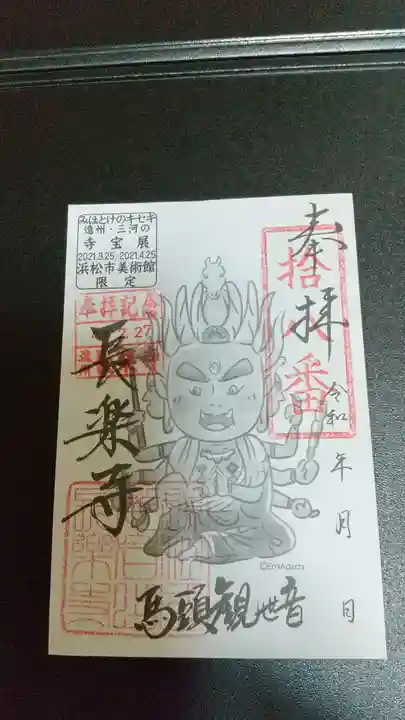 奉拝
拾八番
令和 年 月 日
馬頭観世音
みほとけのキセキ
遠州・三河の
寺宝展
2021.3.25 2021.4.25
浜松市美術館
限定
奉拝記念
長楽寺
©EmiAdachi